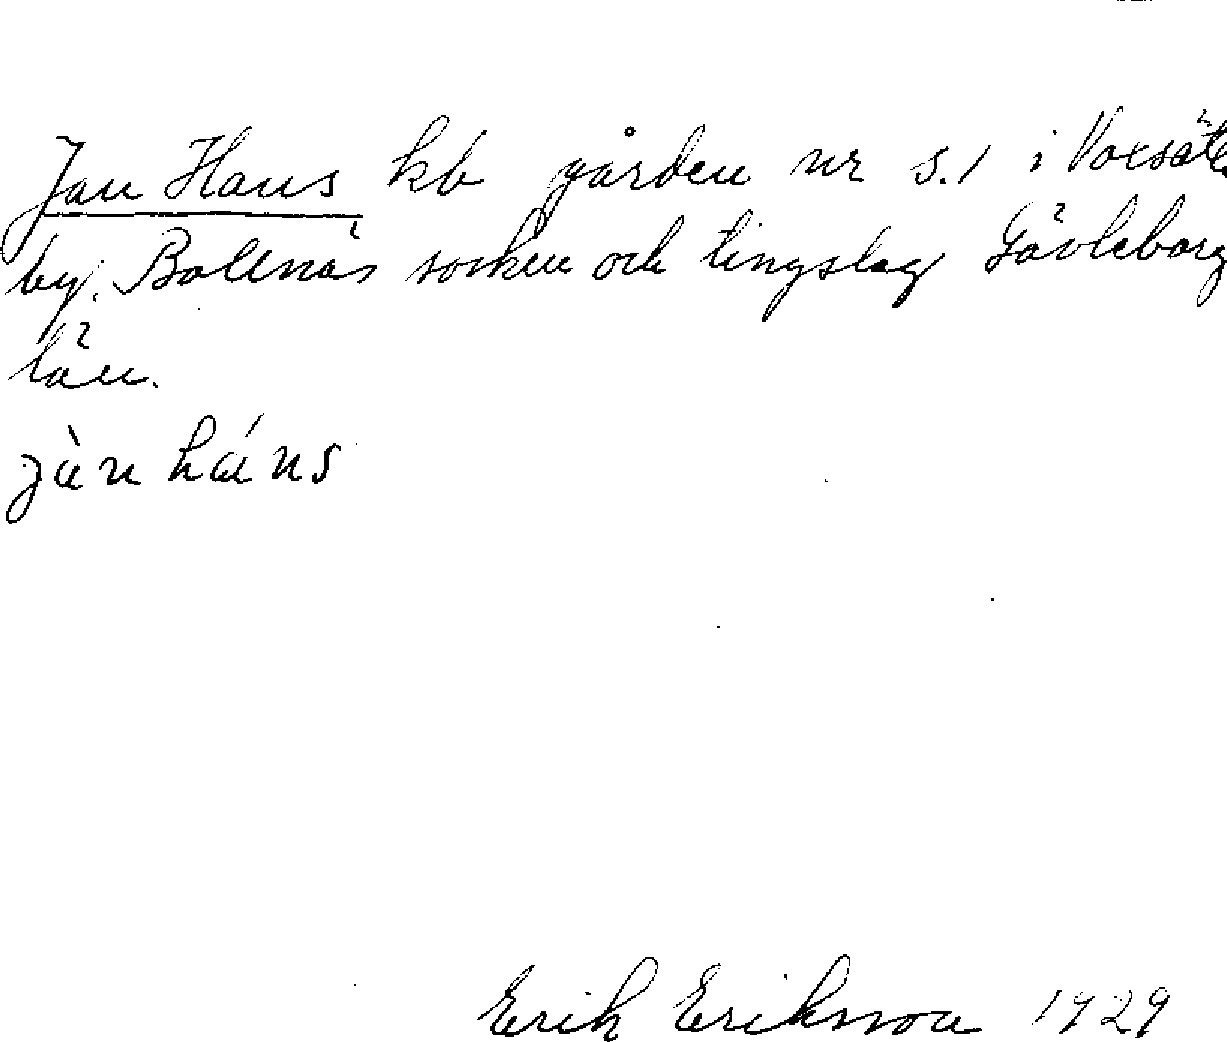 Jan Hans kb gården nr s.1 i Voxsäter
by. Bollnäs socken och tingslag Gävleborg
län.
jàn háns
Erik Eriksson 1929